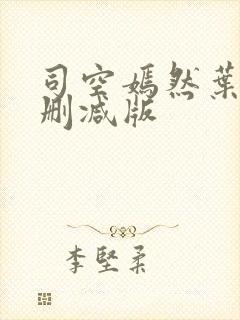 司空嫣然葉
删减版
李堅柔